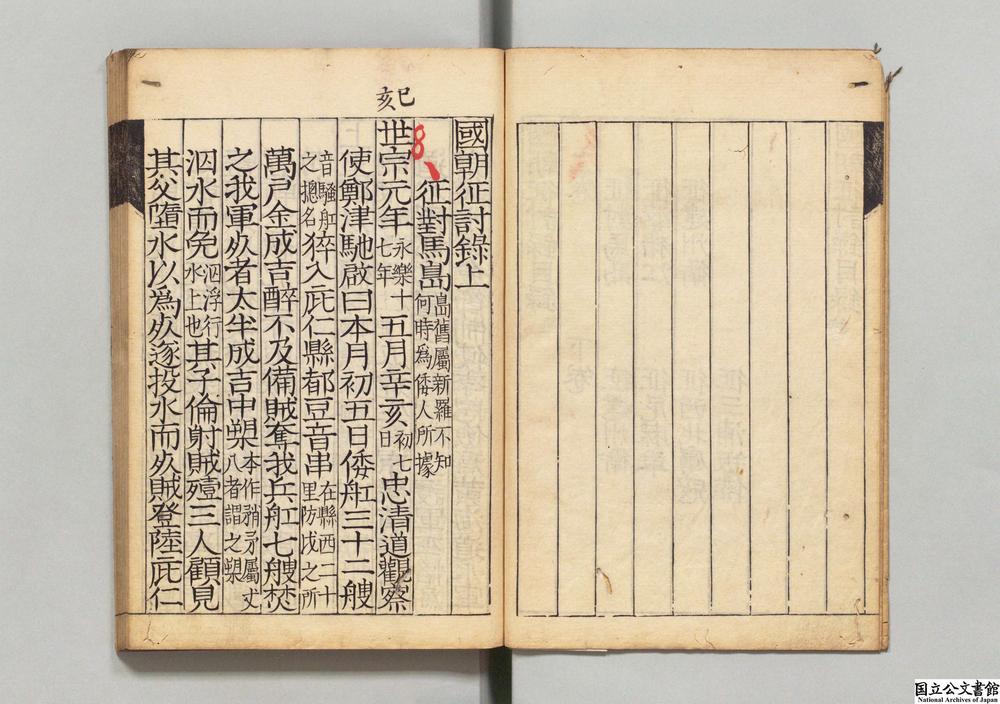 巳亥
國朝征討錄上
8、
征對馬島 島舊屬新羅不知何時爲倭人所據
世宗元年 永樂十七年 五月辛亥 初七日 忠清道觀察
使鄭津馳啟曰本月初五日倭舡三十二艘
音騷舡之摠名 猝入庇仁縣都豆音串 在縣西二十里防戍之所
萬戶金成吉醉不及備賊奪我兵舡七艘焚
之我軍死者太半成吉中槊 本作矟矛屬丈八者謂之槊
泅水而免 泅浮行水上也 其子倫射賊殪三人顧見
其父墮水以爲死遂投水而死賊登陸庇仁
国立公文書館
National Archives of Japan